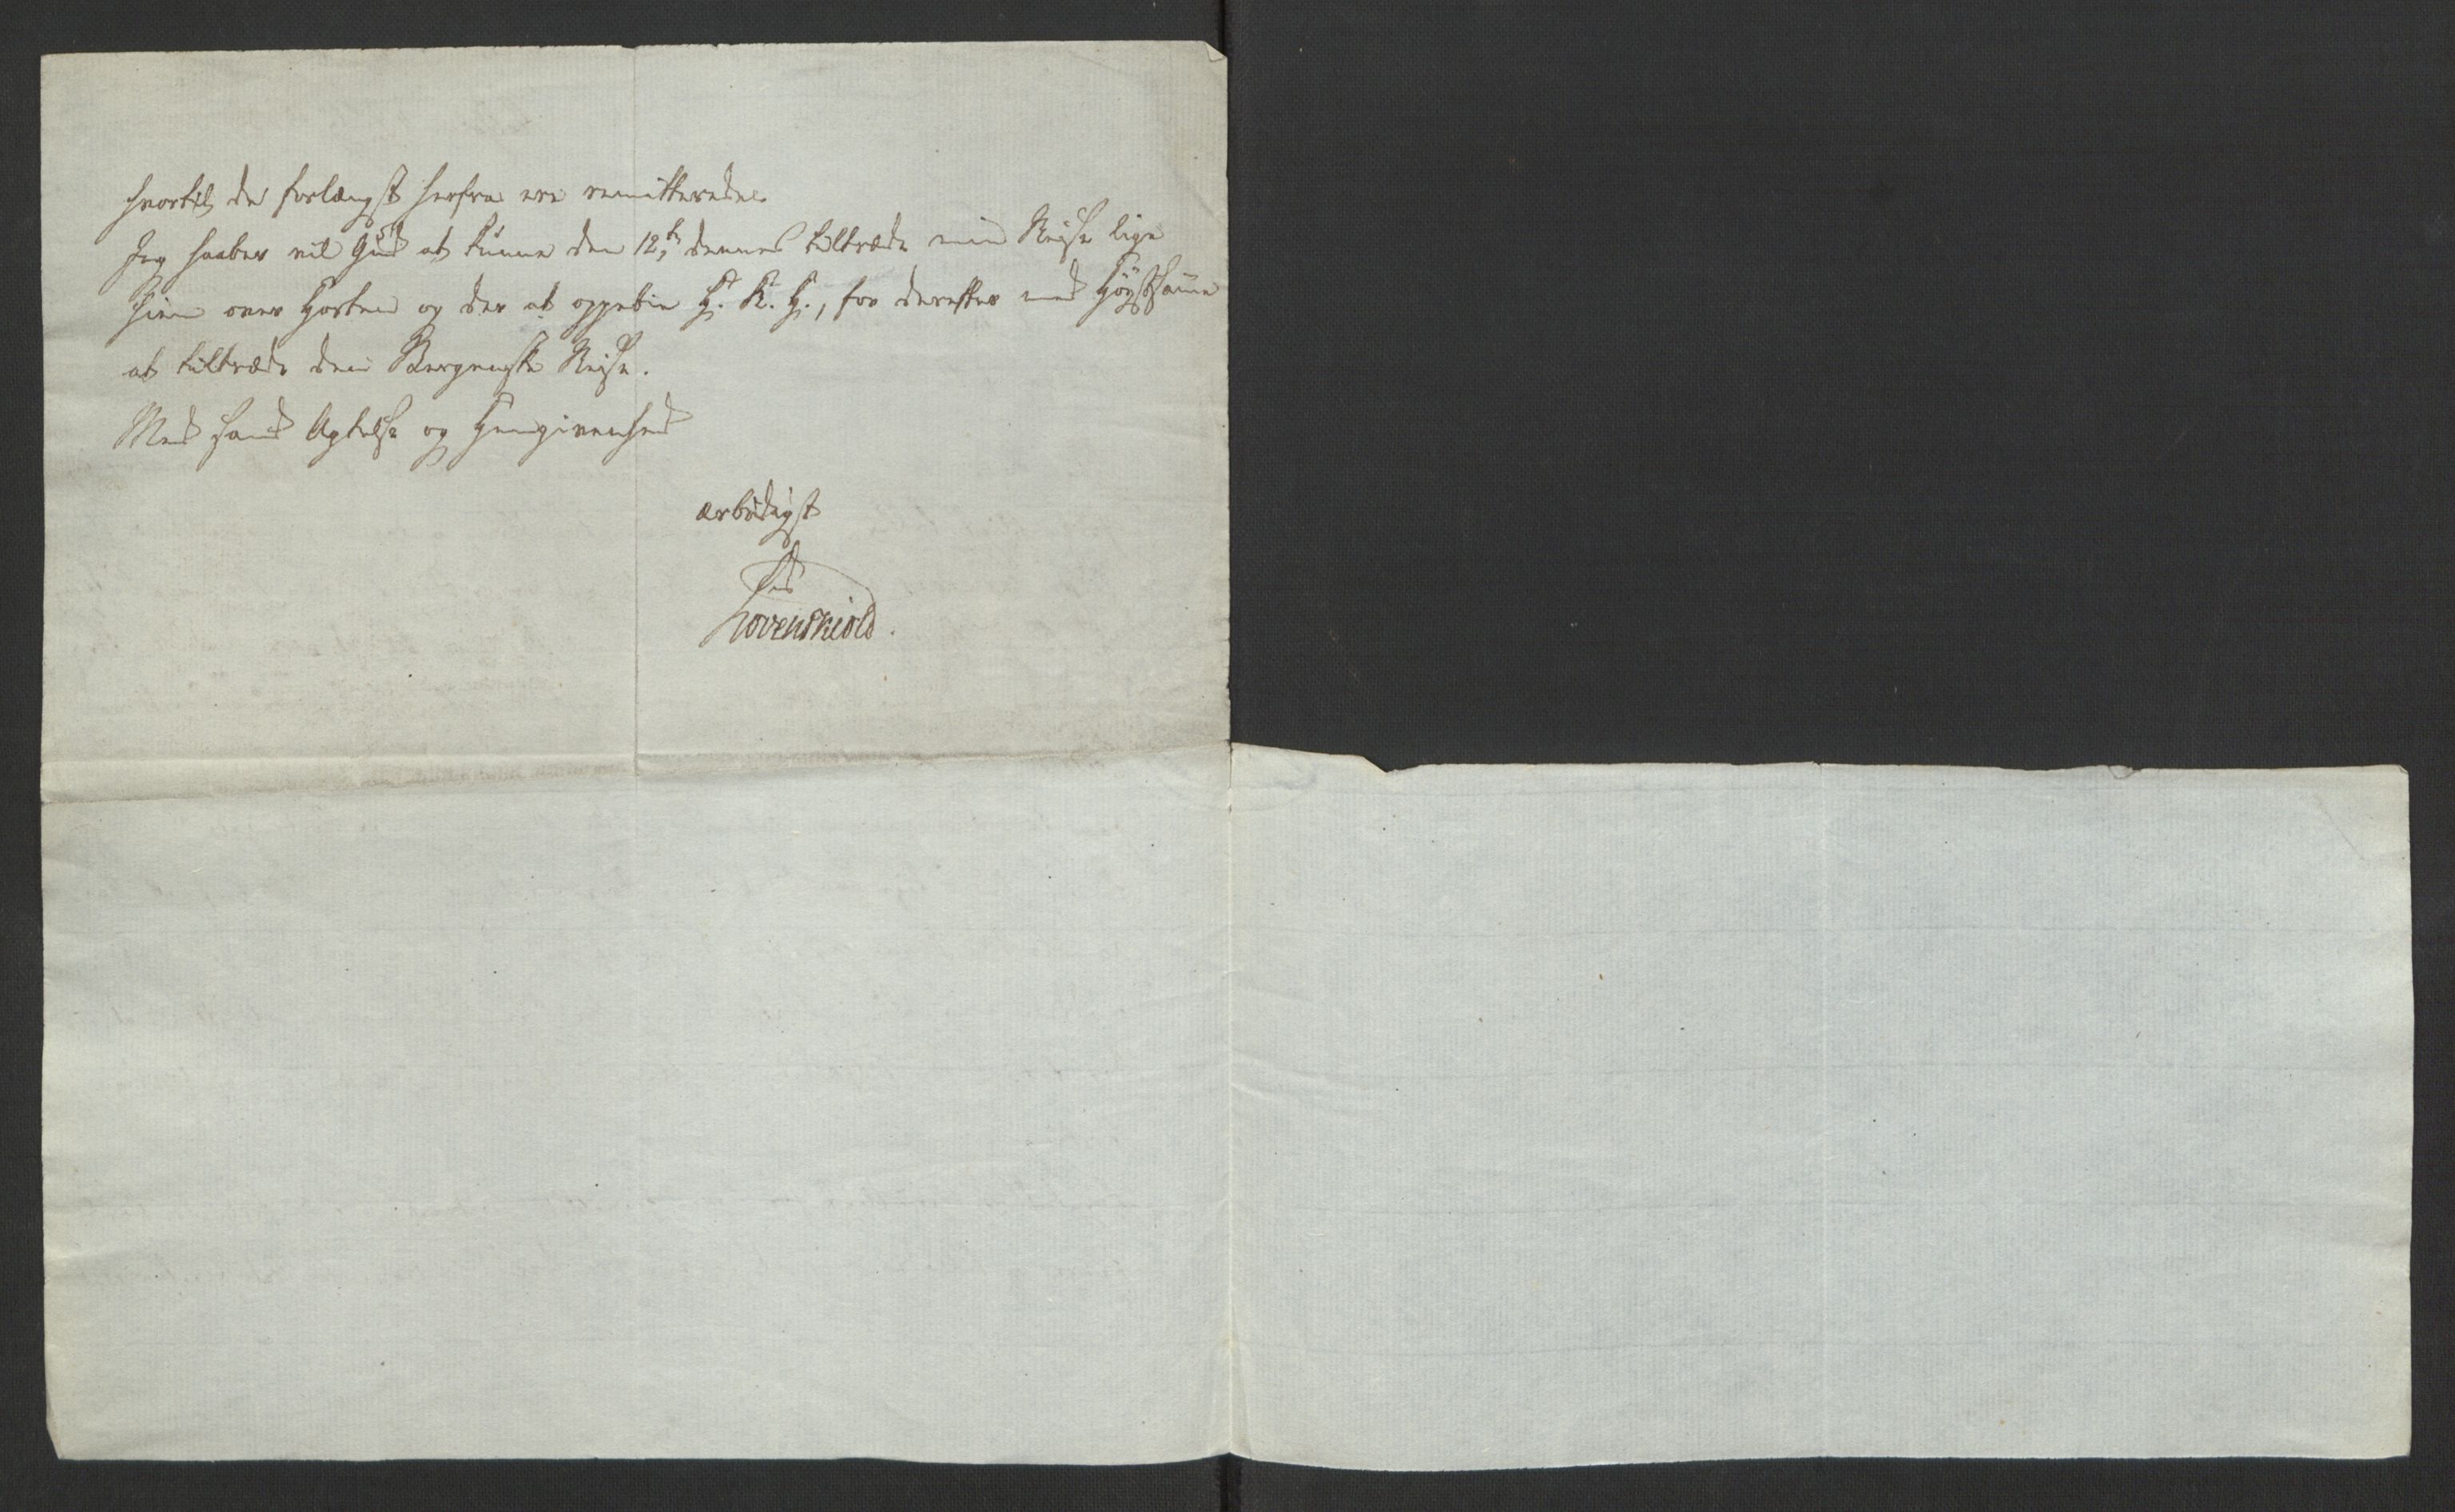 hvortil de forlængst herfra ere remitterede.
Jeg haaber vil Gud at kunne den 12te dennes tiltræde min Reise lige
hiem over Horten og der at oppebie H. K. H., for derefter med Høystsamme
at tiltræde den Bergenske Reise.
Med sand Agtelse og Hengivenhed
ærbødigst
Løvenskiold.